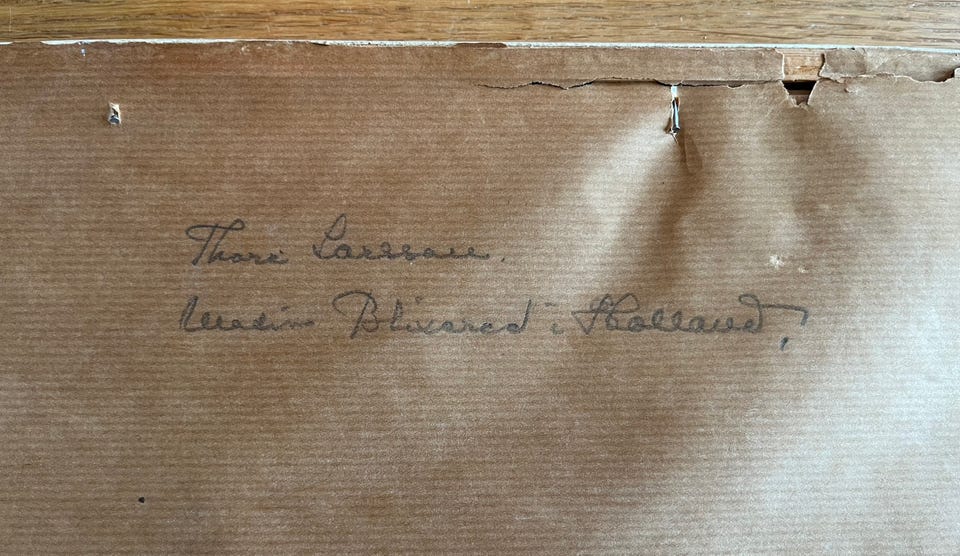 Thore Larsson.
Blixered i Holland,